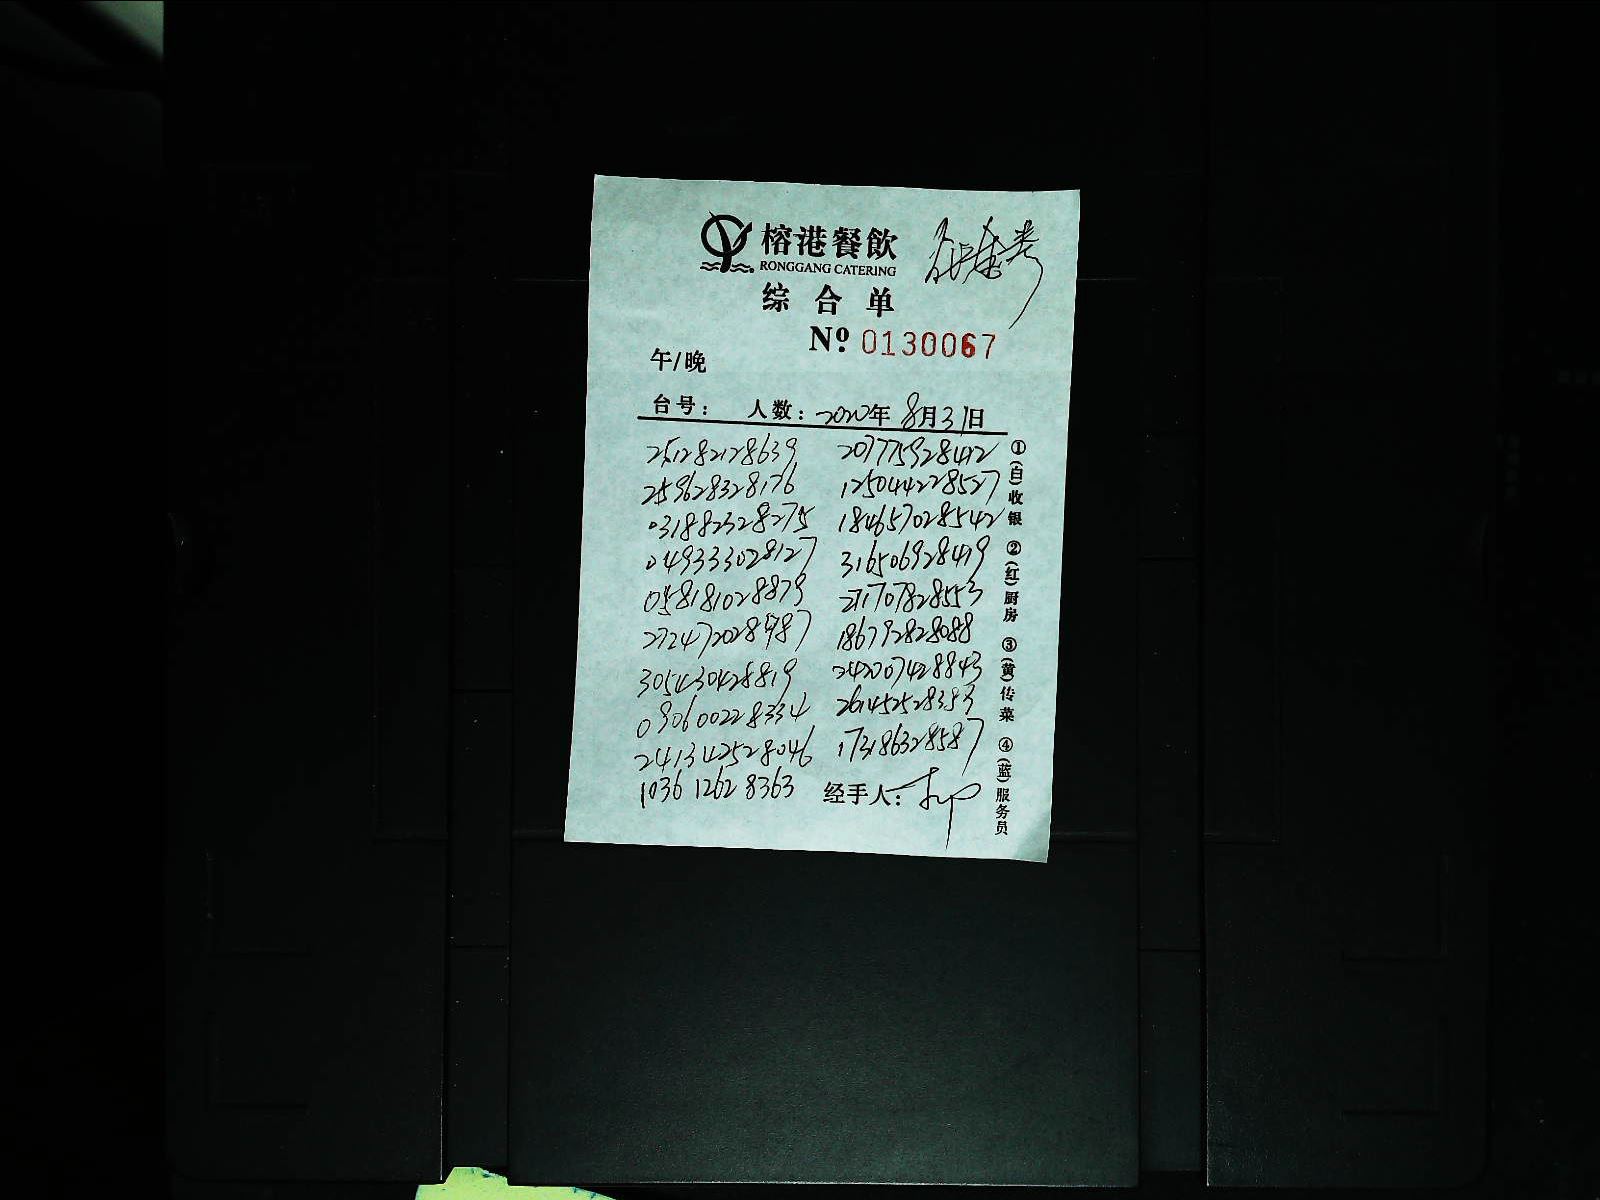 榕港餐飲
RONGGANG CATERING
综合单
Nº 0130067
午/晚
台号： 人数：2022年 8月31日
251282128639 207775928412
259628328176 125044228527
031882328275 184657028542
049333028127 316506928419
058181028879 217707828553
272472028987 186792828088
305430428819 242007428843
090600228334 261452528383
241342528046 173186328587
1036 1262 8363 经手人：
①(白)收银 ②(红)厨房 ③(黄)传菜 ④(蓝)服务员